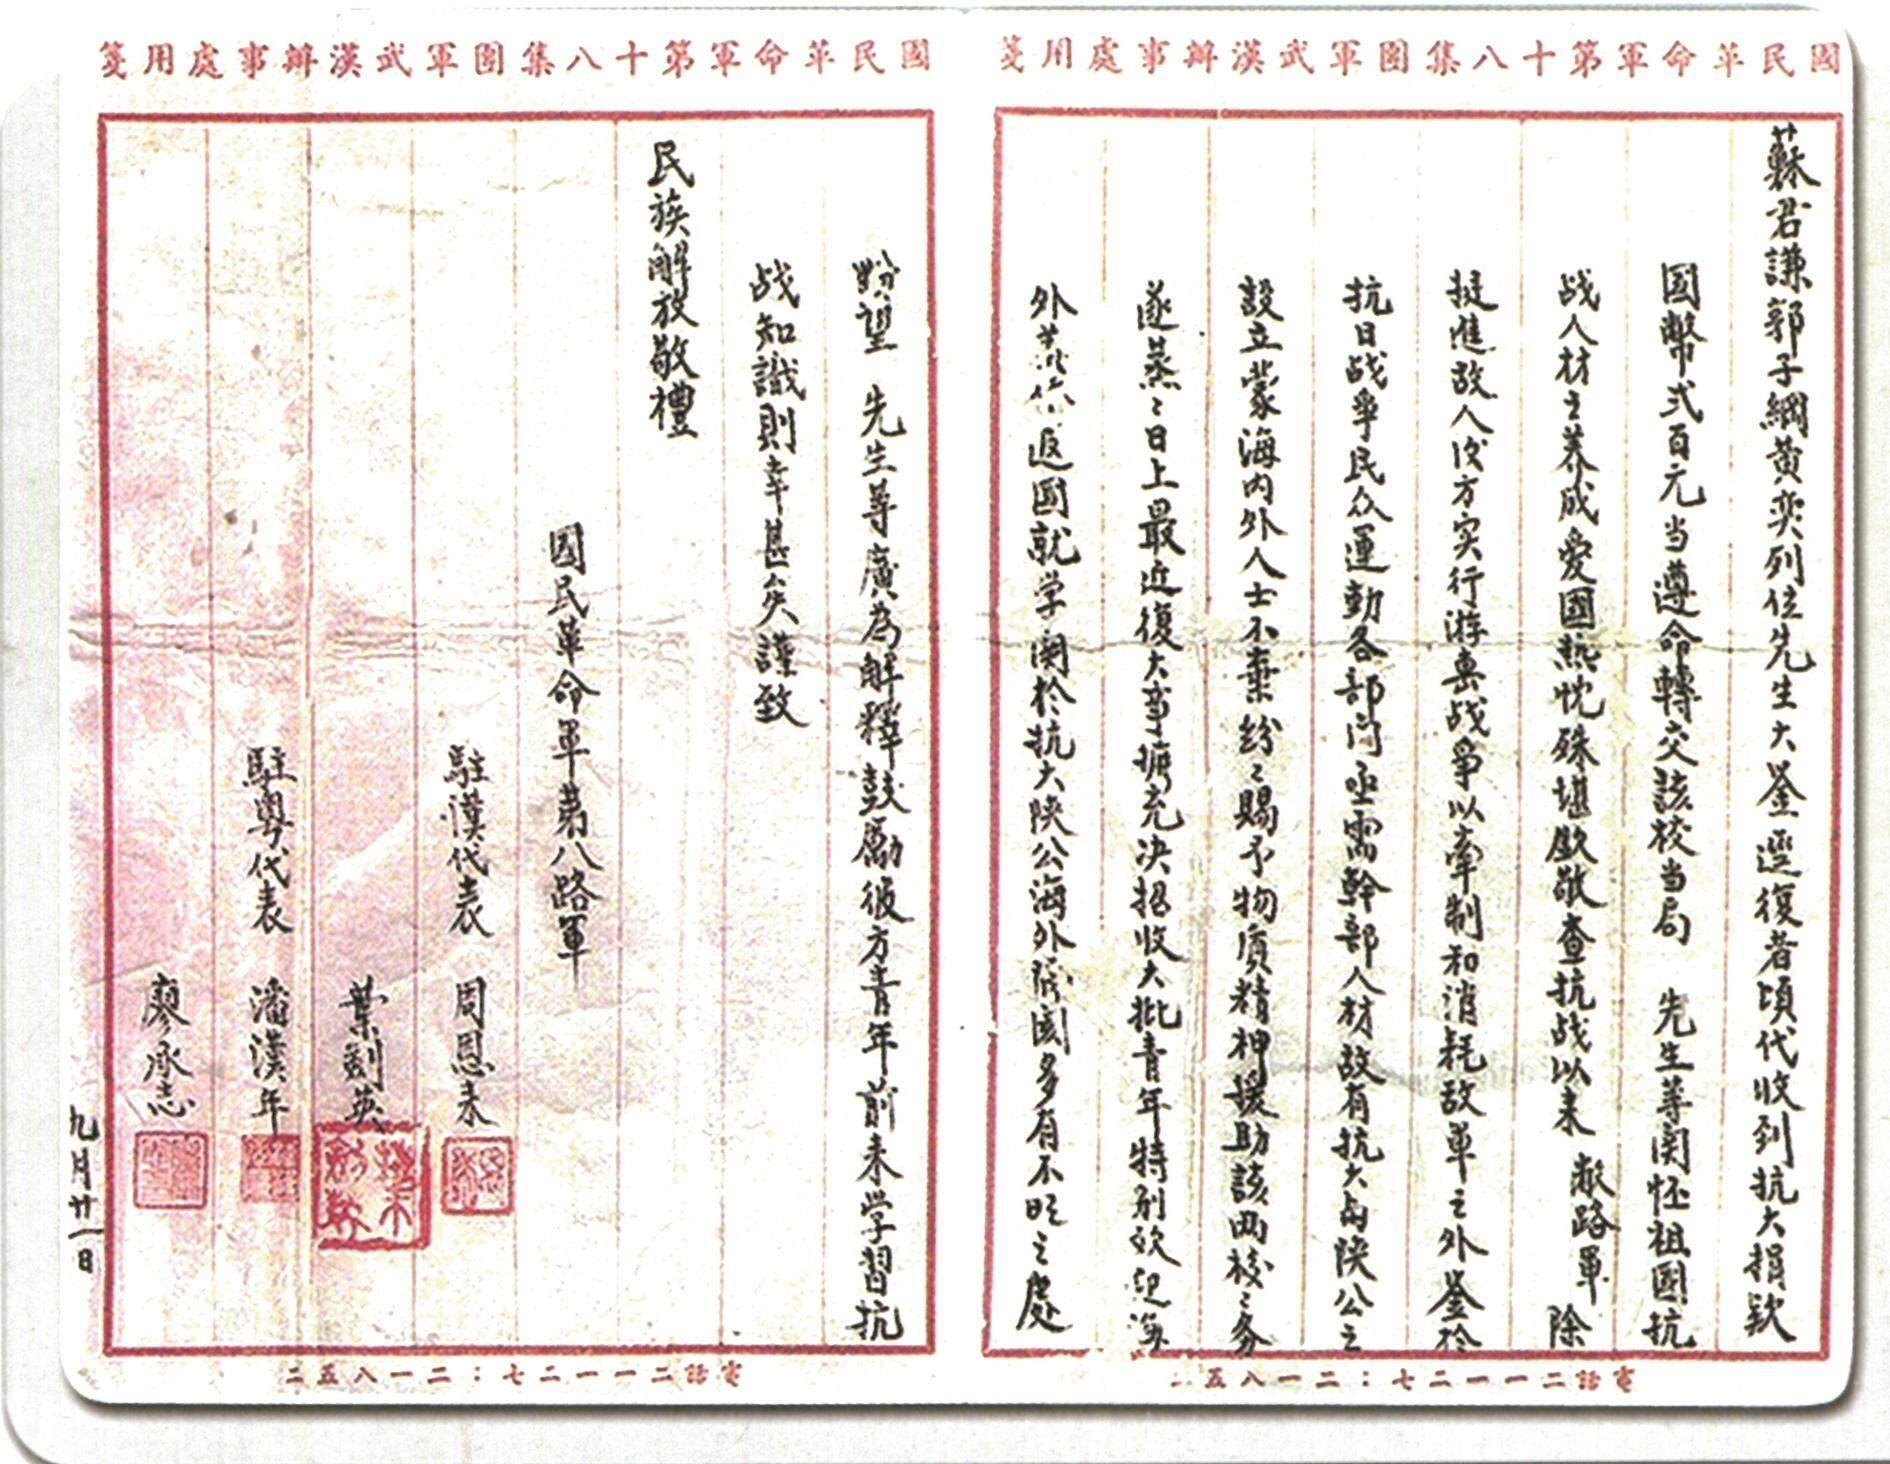 國民革命軍第十八集團軍武漢辦事處用箋
蘇君謙郭子綱黄奕列位先生大鉴逕復者頃代收到抗大捐欵
國幣弍百元当遵命轉交該校当局 先生等関怀祖國抗
战人材之养成爱國热忱殊堪欽敬查抗战以来 敝路軍 除
挺進敌人后方实行游击战争以牽制和消耗敌军之外鉴於
抗日战争民众運動各部门亟需幹部人材故有抗大与陕公之
設立蒙海内外人士不棄紛〻賜予物质精神援助該两校〻务
遂蒸〻日上最近復大事擴充决招收大批青年特别欢迎海
外 返國就学関於抗大陕公海外 國多有不明之處
電話二一一二七：二一八五
國民革命軍第十八集團軍武漢辦事處用箋
盼望 先生等廣為解釋鼓勵彼方青年前来学習抗
战知識則幸甚矣謹致
民族解放敬禮
國民革命軍第八路軍
駐漢代表 周恩来
葉劍英
駐粤代表 潘漢年
廖承志
九月廿一日
電話二一一二七：二一八五二